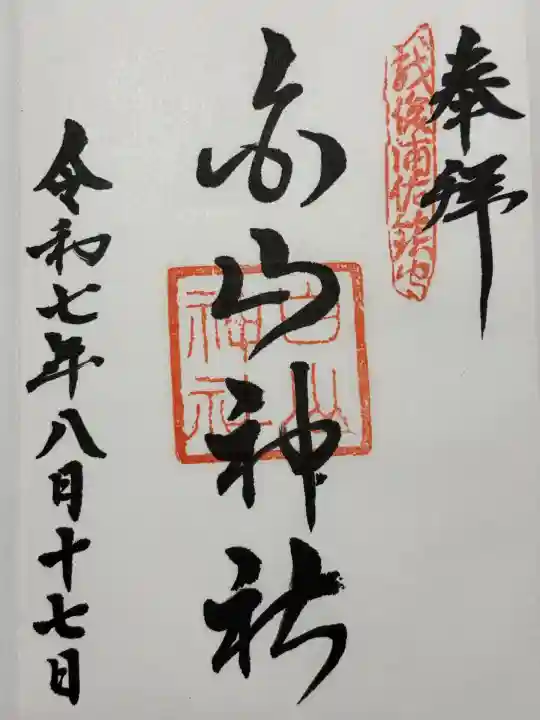 奉拝
越後浦佐鎮守
白山神社
白山
神社
令和七年八月十七日